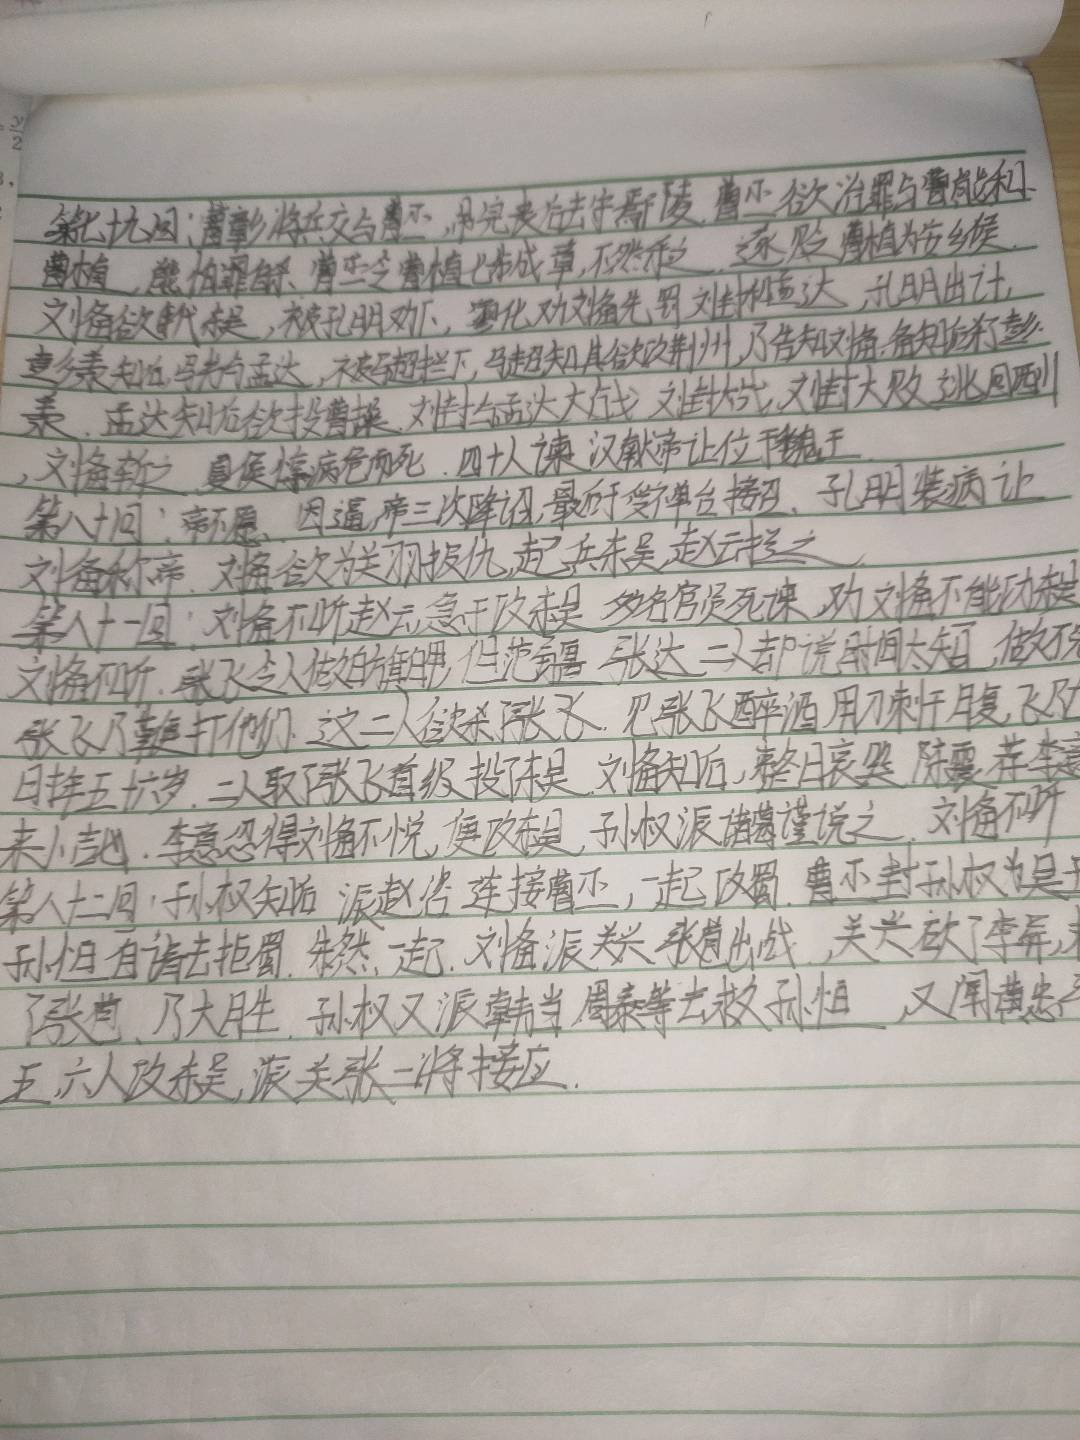 第七十九回：曹彰将兵交与曹丕，吊完丧后去守鄢陵．曹丕欲治罪与曹熊和
曹植，熊怕罪自杀、曹丕令曹植七步成章，不然杀之．遂贬曹植为安乡侯．
刘备欲伐东吴，被孔明劝下，廖化劝刘备先罚刘封和孟达，孔明出计，
彭羕知后写书与孟达，被马超拦下，马超知其欲攻荆州，乃告知刘备．备知后杀了彭
羕．孟达知后欲投曹操．刘封与孟达大战 刘封大战，刘封大败逃回西川
，刘备斩之．夏侯惇病危而死．四十人谏汉献帝让位于魏王．
第八十回：帝不愿、因逼，帝三次降诏，最后于受禅台接诏、孔明装病让
刘备称帝．刘备欲为关羽报仇，起兵东吴，赵云拦之．
第八十一回：刘备不听赵云，急于攻东吴 多名官员死谏，劝刘备不能功东吴
刘备不听．张飞令人做白旗白甲，但范疆 张达二人却说时间太短，做不完
张飞乃鞭打他们．这二人欲杀了张飞．见张飞醉酒用刀刺于腹，飞乃亡
日年五十六岁．二人取了张飞首级投了东吴．刘备知后，整日哀哭 陈震荐李意
来卜吉凶．李意忽得刘备不悦，便攻东吴，孙权派诸葛谨说之．刘备不听
第八十二回：孙权知后派赵咨连接曹丕，一起攻蜀．曹丕封孙权为吴王
孙恒自请去拒蜀．朱然一起．刘备派关兴 张苞出战．，关兴砍了李异，救
了张苞、乃大胜．孙权又派韩当周泰等去救孙恒 ，又闻黄忠带
五、六人攻东吴，派关张二将接应．
y
2